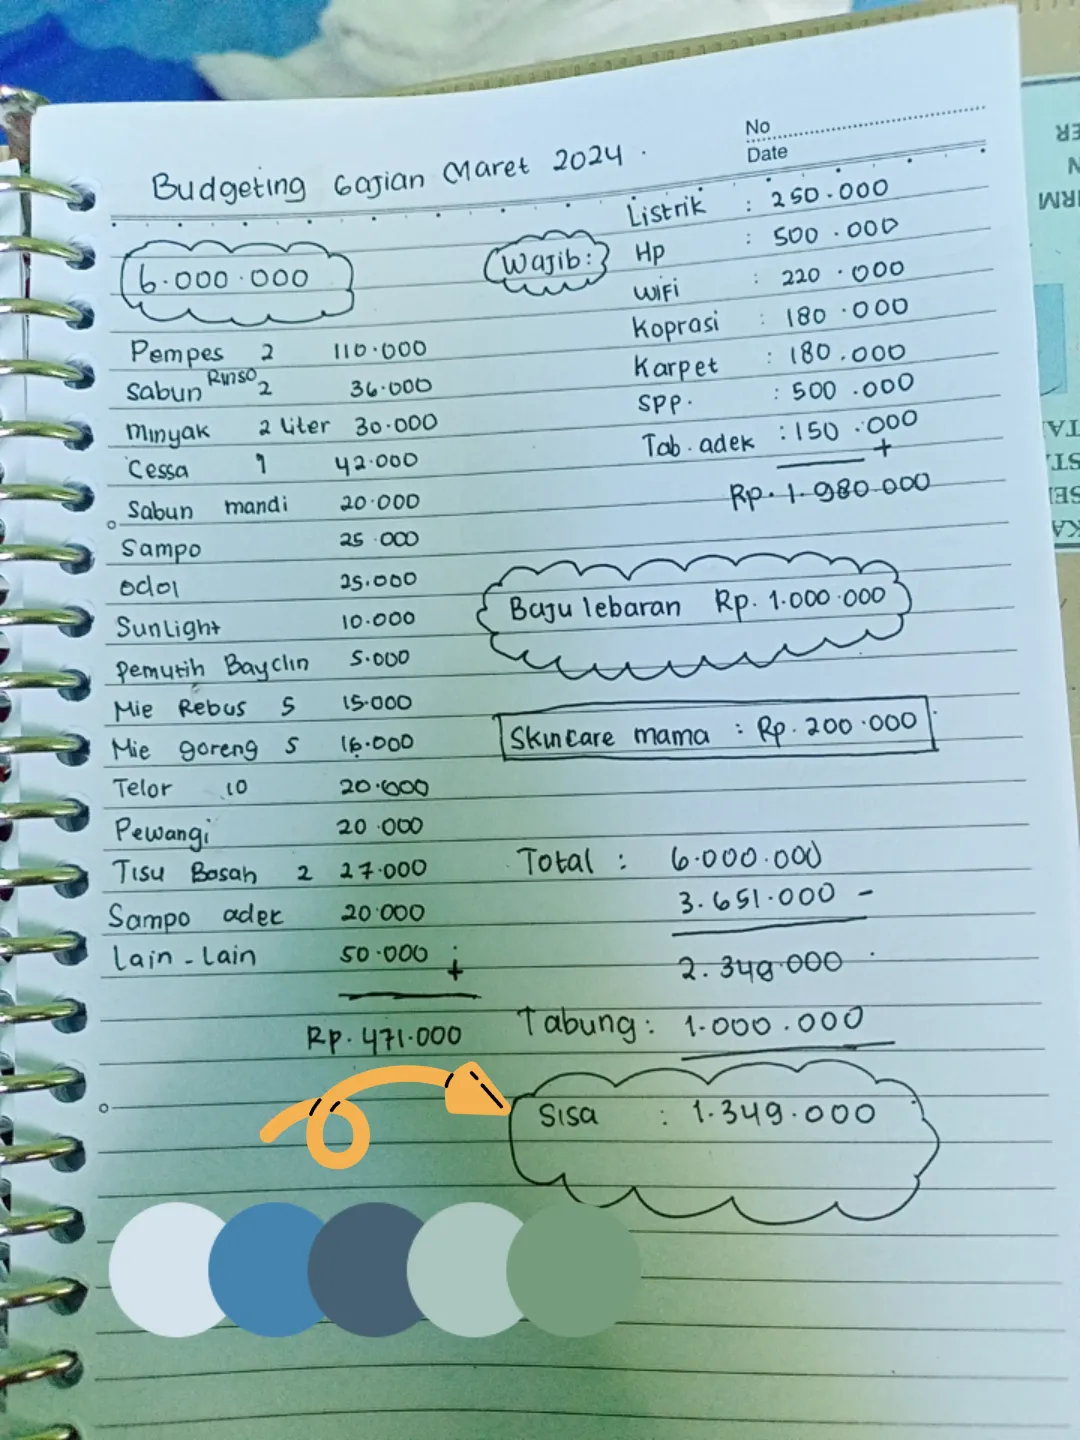 No
Date
Budgeting Gajian Maret 2024.
6.000.000
Pempes 2 110.000
Sabun Rinso 2 36.000
Minyak 2 liter 30.000
Cessa 1 42.000
Sabun mandi 20.000
Sampo 25.000
Odol 25.000
Sunlight 10.000
Pemutih Bayclin 5.000
Mie Rebus 5 15.000
Mie goreng 5 16.000
Telor 10 20.000
Pewangi 20.000
Tisu Basah 2 27.000
Sampo adek 20.000
Lain-Lain 50.000 +
Rp. 471.000
Wajib:
Listrik : 250.000
Hp : 500.000
Wifi : 220.000
Koprasi : 180.000
Karpet : 180.000
SPP. : 500.000
Tab. adek : 150.000 +
Rp. 1.980.000
Baju lebaran Rp. 1.000.000
Skincare mama : Rp. 200.000
Total : 6.000.000
3.651.000 -
2.349.000
Tabung : 1.000.000
Sisa : 1.349.000